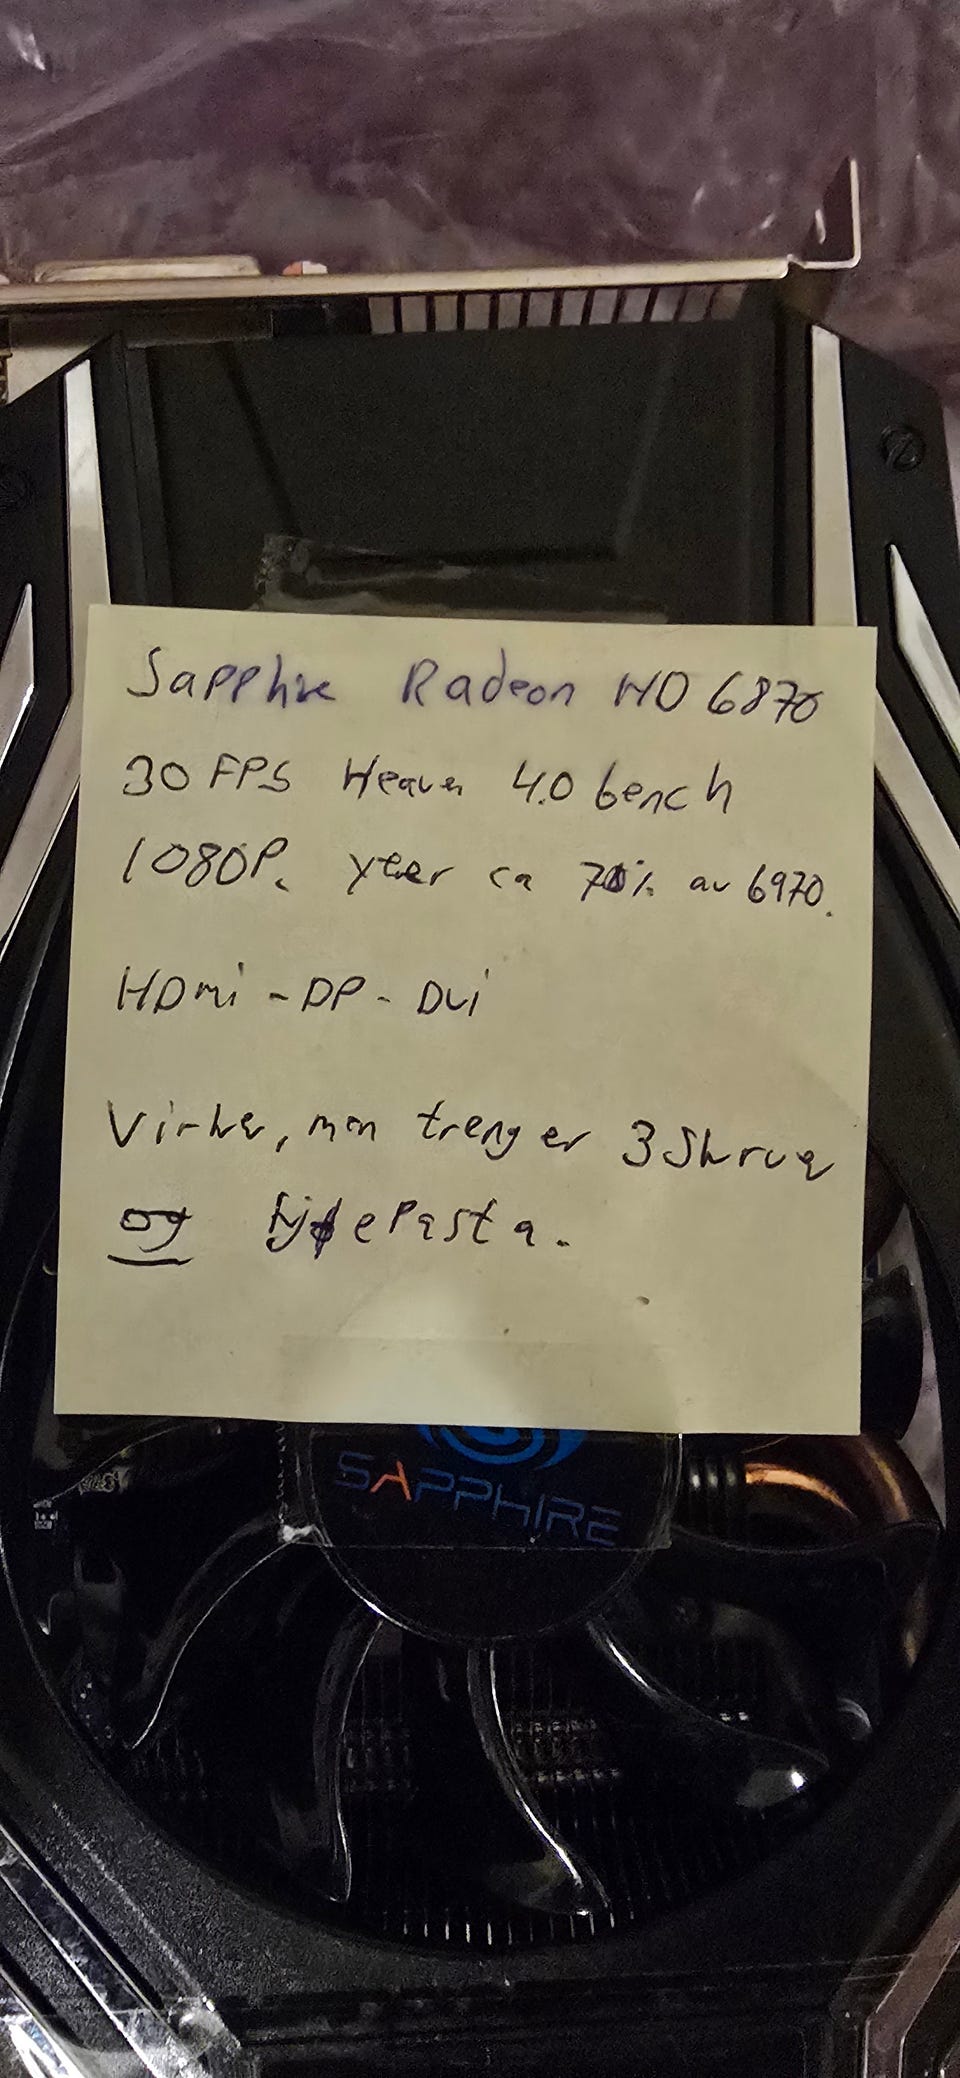 Sapphire Radeon HD 6870
30 FPS Heaven 4.0 bench
1080P. yter ca 70% av 6970.
HDmi - DP - Dvi
Virker, men trenger 3 Skruer
og kjølePasta.
SAPPHIRE